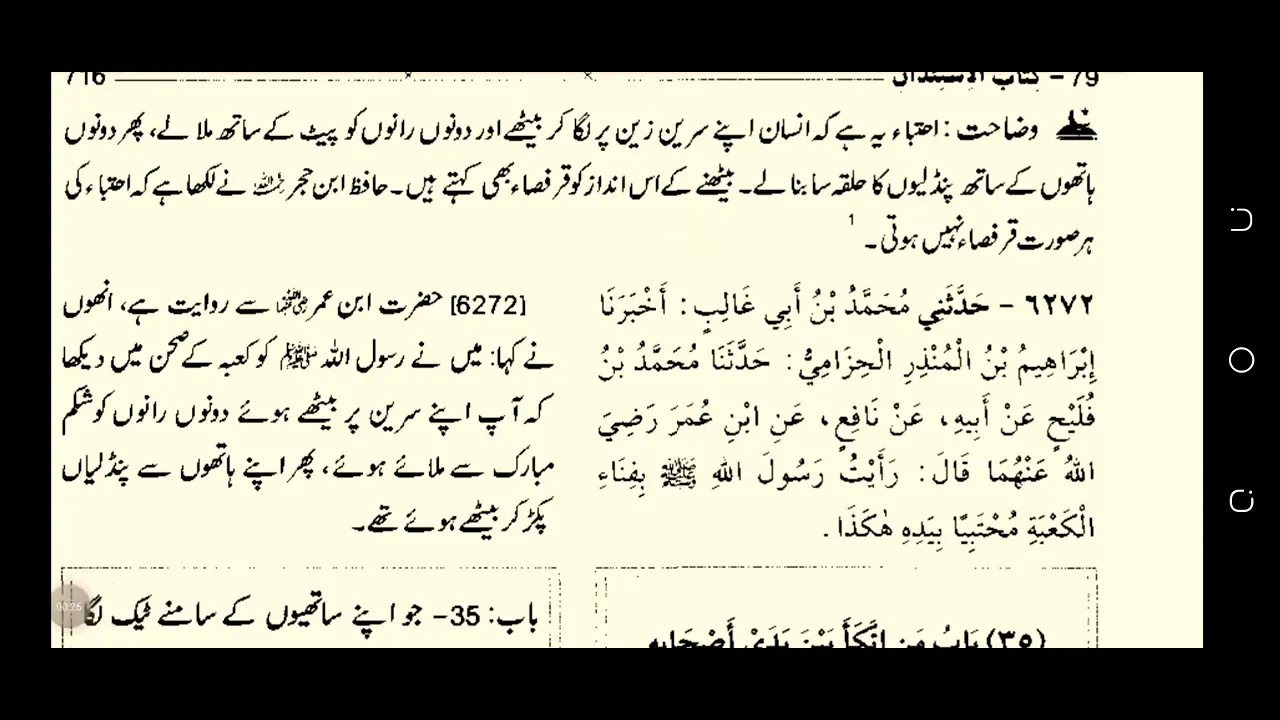 79 - کتاب الاستئذان 716
وضاحت : احتباء یہ ہے کہ انسان اپنے سرین زمین پر لگا کر بیٹھے اور دونوں رانوں کو پیٹ کے ساتھ ملا لے، پھر دونوں
ہاتھوں کے ساتھ پنڈلیوں کا حلقہ سا بنا لے۔ بیٹھنے کے اس انداز کو قرفصاء بھی کہتے ہیں۔ حافظ ابن حجر رحمہ اللہ نے لکھا ہے کہ احتباء کی
ہر صورت قرفصاء نہیں ہوتی۔ 1
٦٢٧٢ - حَدَّثَنِي مُحَمَّدُ بْنُ أَبِي غَالِبٍ : أَخْبَرَنَا
إِبْرَاهِيمُ بْنُ الْمُنْذِرِ الْحِزَامِيُّ : حَدَّثَنَا مُحَمَّدُ بْنُ
فُلَيْحٍ عَنْ أَبِيهِ، عَنْ نَافِعٍ، عَنِ ابْنِ عُمَرَ رَضِيَ
اللهُ عَنْهُمَا قَالَ : رَأَيْتُ رَسُولَ اللهِ ﷺ بِفِنَاءِ
الْكَعْبَةِ مُحْتَبِيًا بِيَدِهِ هٰكَذَا .
[6272] حضرت ابن عمر رضی اللہ عنہما سے روایت ہے، انھوں
نے کہا: میں نے رسول اللہ ﷺ کو کعبہ کے صحن میں دیکھا
کہ آپ اپنے سرین پر بیٹھے ہوئے دونوں رانوں کو شکم
مبارک سے ملائے ہوئے، پھر اپنے ہاتھوں سے پنڈلیاں
پکڑ کر بیٹھے ہوئے تھے۔
(٣٥) بَابُ مَنِ اتَّكَأَ بَيْنَ يَدَيْ أَصْحَابِهِ
باب: 35- جو اپنے ساتھیوں کے سامنے ٹیک لگا
00:26